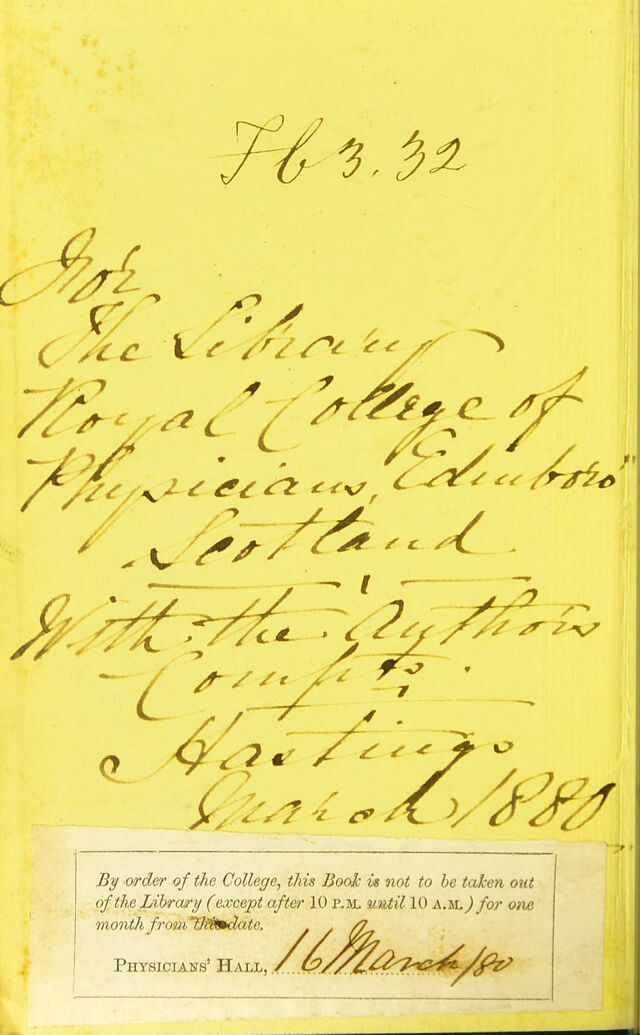 Fb 3. 32
For
The Library
Royal College of
Physicians, Edinboro'
Scotland
With the Authors
Compts.
Hastings
March 1880
By order of the College, this Book is not to be taken out
of the Library (except after 10 P.M. until 10 A.M.) for one
month from this date.
PHYSICIANS' HALL, 16 March/80